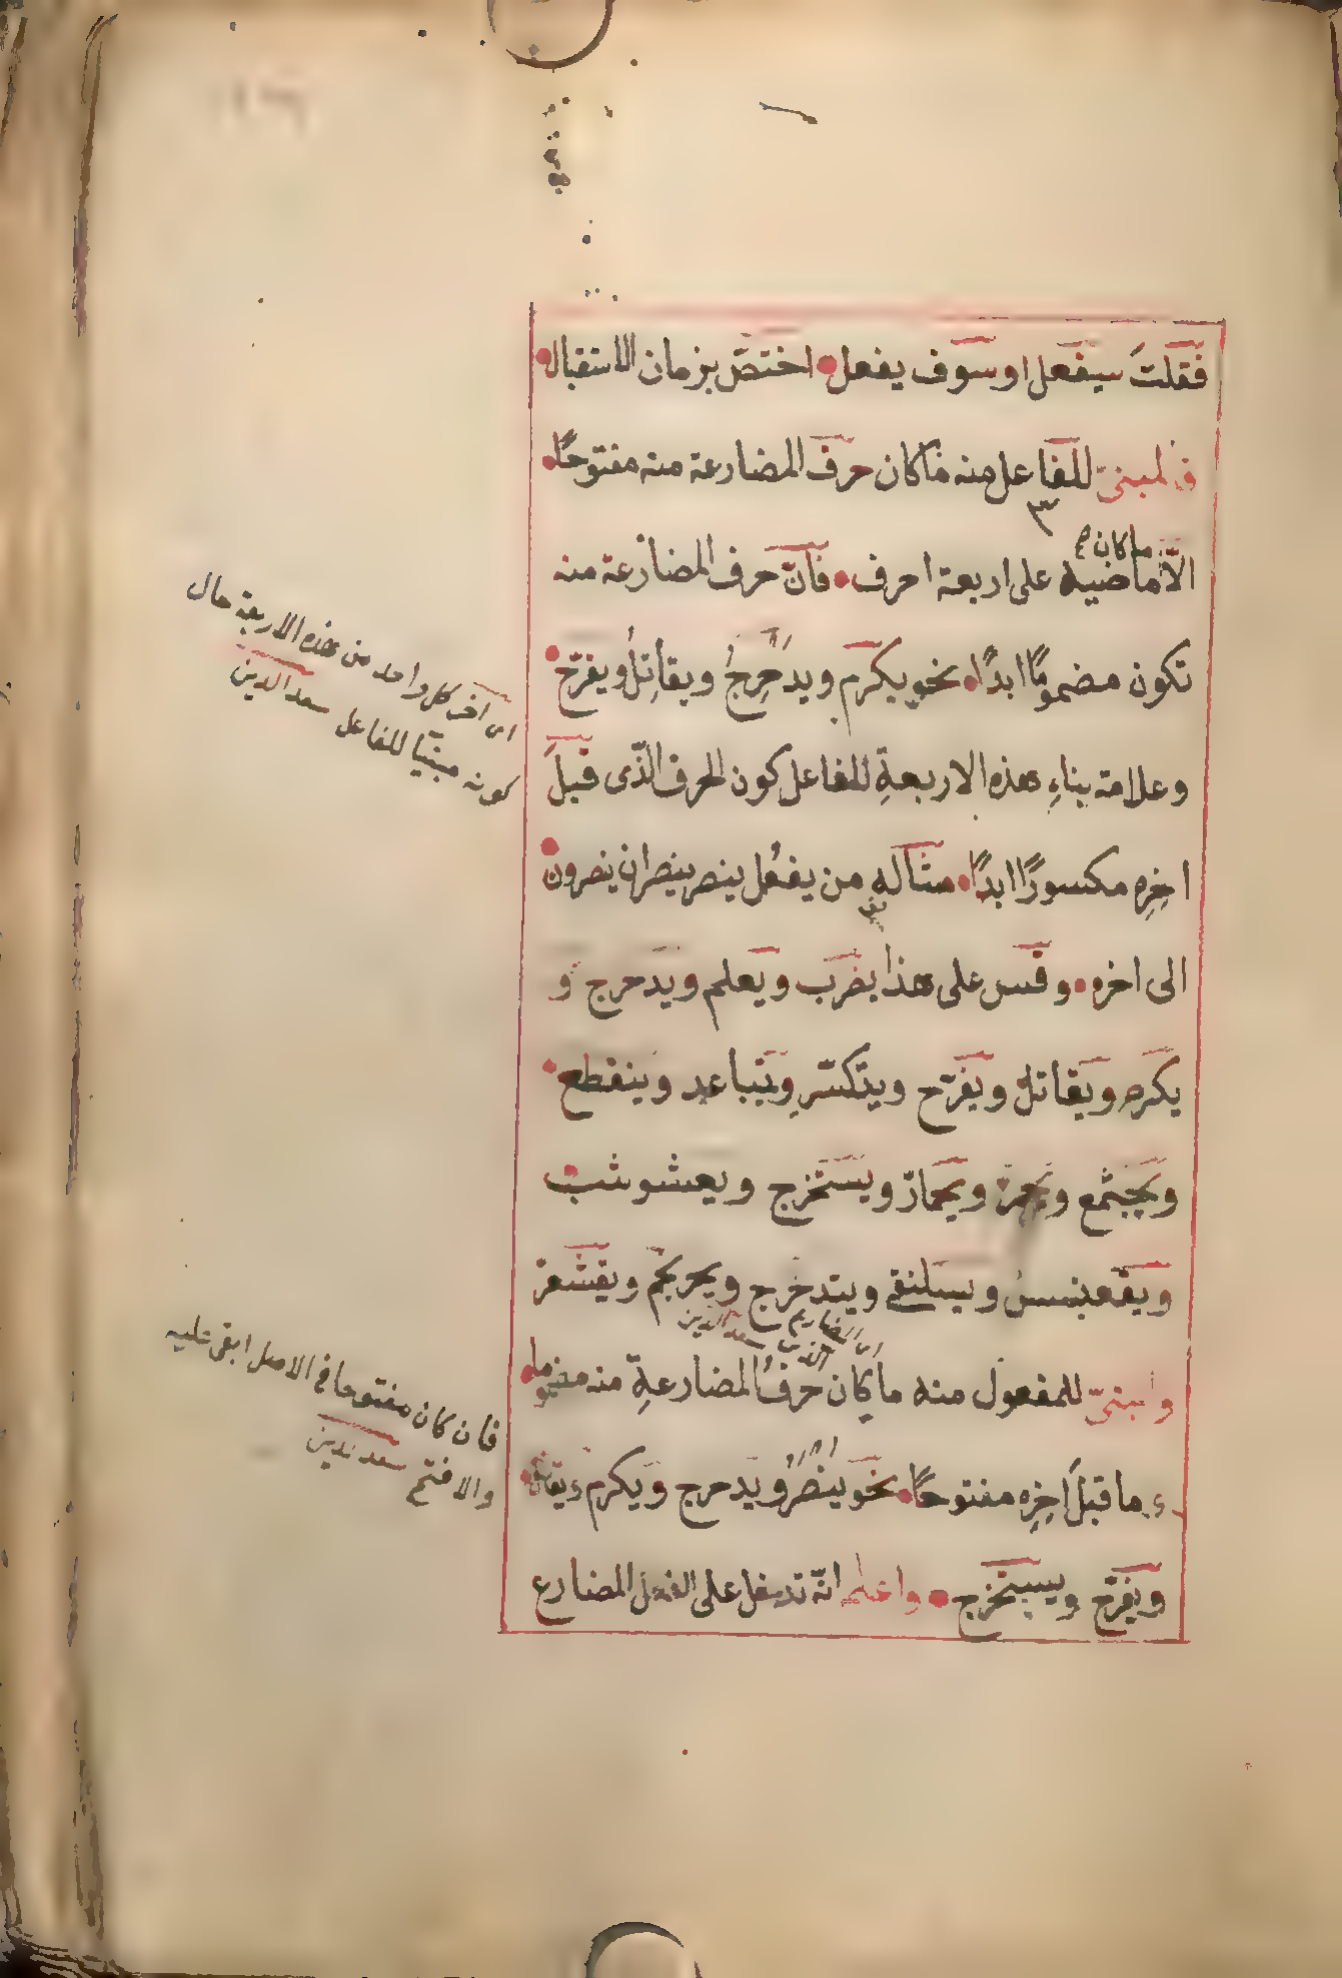 فَقَلتَ سيفعل او سَوف يفعل اختصّ بزمان الاستقبال
فالمبنىّ للفاعل منه ماكان حرف المضارعة منه مفتوحًا
الّا ما كان ماضيه على اربعة احرف فانّ حرف المضارعة منه
تكون مضمومًا ابدًا نحو يكرم ويدَحرِجُ ويقاتِلُ ويفرّح
وعلامة بناءِ هذه الاربعةِ للفاعل كون الحرف الذّى قبلَ
اخِرِه مكسورًا ابدًا مثاله من يفعُل ينصر ينصران ينصرون
الى اخره وقس على هذا يضرب ويَعلم ويدحرج و
يكرم ويقاتل ويفرّح ويتكسّر ويتباعد وينقطع
ويجتمع ويحمرّ ويحمارّ ويستخرج ويعشوشب
ويقعنسس ويسلنقى ويتدحرج ويحرنجم ويقشعرّ
والمبنىّ للمفعول منه ماكان حرفُ المضارعةِ منه مضموما
وما قبلَ اخِرِه مفتوحًا نحو يُنصَرُ ويدحرج ويكرم ويقاتل
ويفرّح ويستخرج واعلم انّه تدخل على الفعل المضارع
اى آخر كل واحد من هذه الاربعة حال
كونه مبنيّا للفاعل سعد الدين
اى المضارع الذى سعد الدين
فان كان مفتوحا فى الاصل ابقى عليه
والا فتح سعد الدين